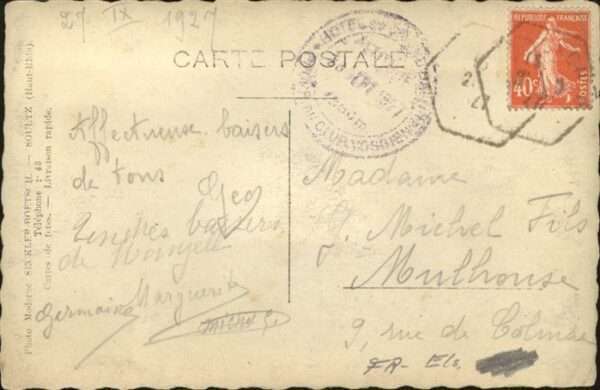 27 IX 1927
CARTE POSTALE
RÉPUBLIQUE FRANÇAISE
40c
POSTES
Photo Moderne SENKLER-BOETSCH. — SOULTZ (Haut-Rhin).
Téléphone : 48
Cartes de fêtes. — Livraison rapide.
Affectueux baisers
de tous
Geo
Tendres baisers
de
Germaine Marguerite
Michel G.
Madame
J. Michel Fils
Mulhouse
9, rue de Colmar
FR- Els.